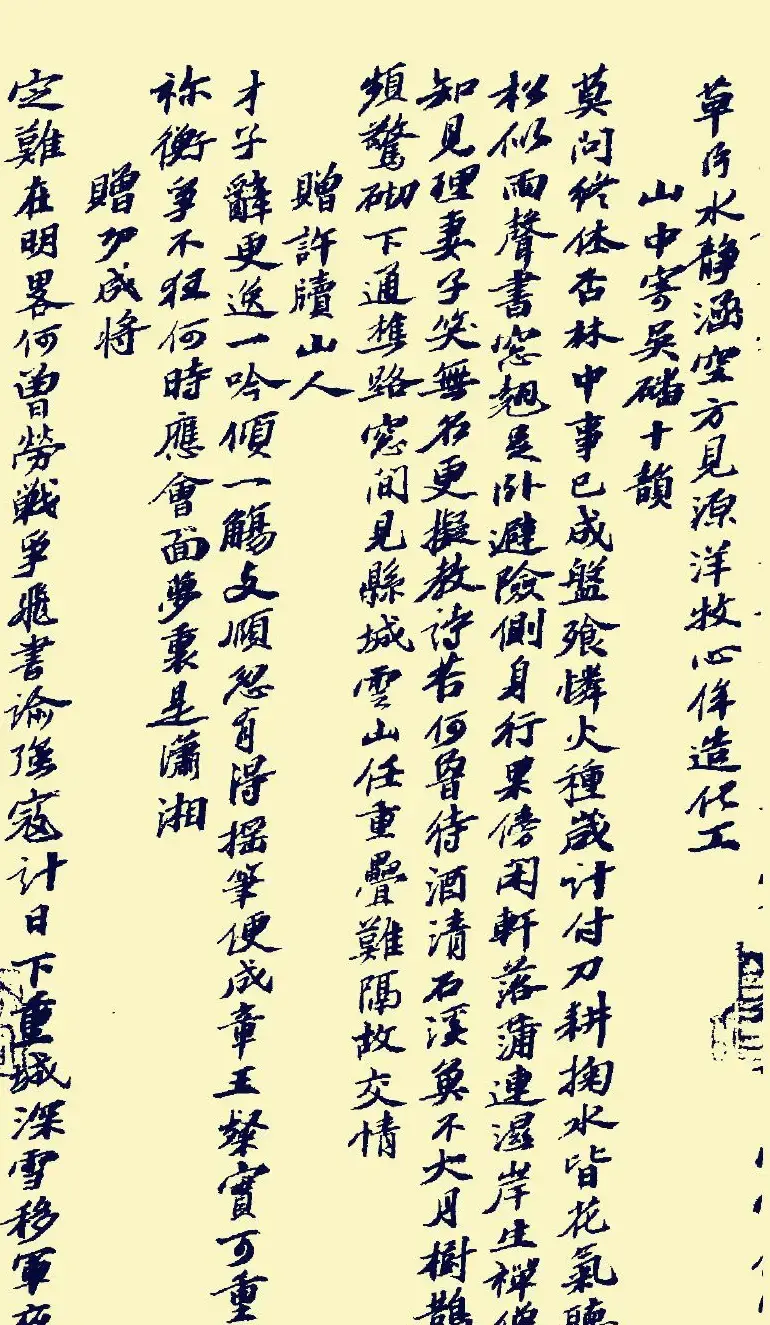 草 水静涵空方見源洋牧心侔造化工
山中寄吳磻十韻
莫問終休否林中事已成盤飱憐火種歲計付刀耕掬水皆花氣聽
松似雨聲書窓翹足卧避險側身行果傍閑軒落蒲連濕岸生禪僧
知見理妻子笑無名更擬教詩苦何曾待酒清石溪魚不大月樹鵲
頻驚砌下通樵路窓間見縣城雲山任重疊難隔故交情
贈許牘山人
才子辭更逸一吟傾一觴支頤忽有得摇筆便成章王粲實可重
祢衡爭不狂何時應會面夢裏是瀟湘
贈功成將
定難在明畧何曾勞戰爭飛書諭强寇計日下重城深雪移軍夜